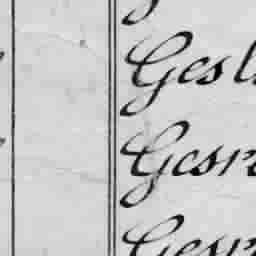 Gesl
Gesr
Gesr